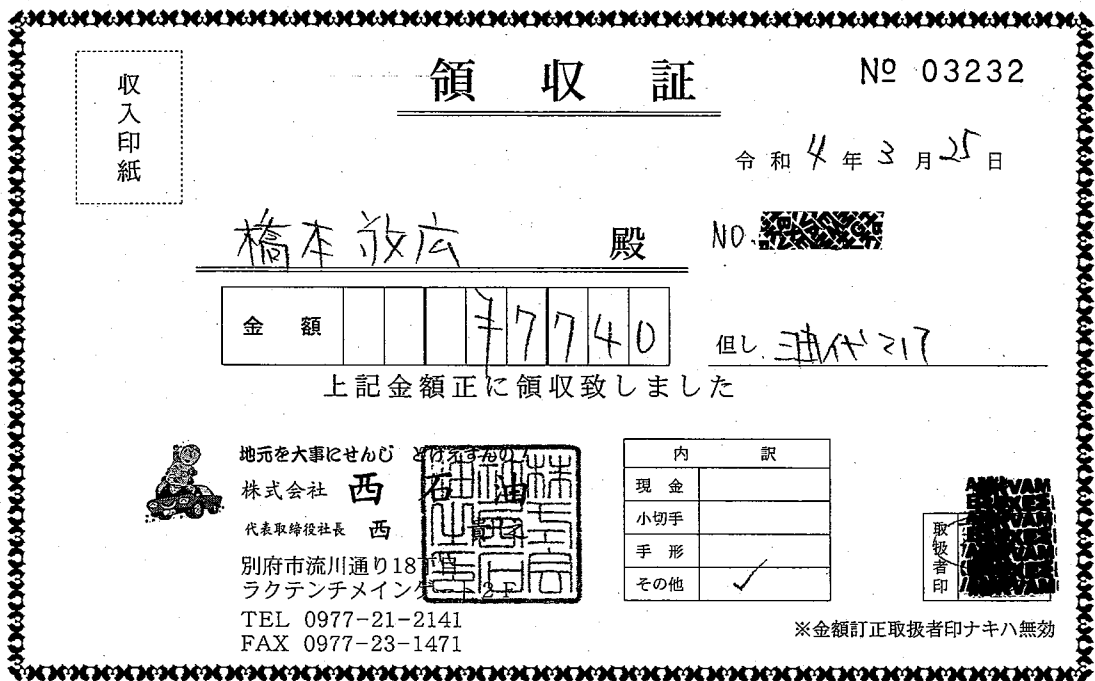 収入印紙
領収証
№ 03232
令和4年3月25日
橋本敬広 殿
NO.
金額 ¥7740
但し 油代として
上記金額正に領収致しました
地元を大事にせんじ どげえすんの!
株式会社 西石油
代表取締役社長 西
別府市流川通り18丁目
ラクテンチメインゲート2F
TEL 0977-21-2141
FAX 0977-23-1471
内訳
現金
小切手
手形
その他 ✓
取扱者印
※金額訂正取扱者印ナキハ無効